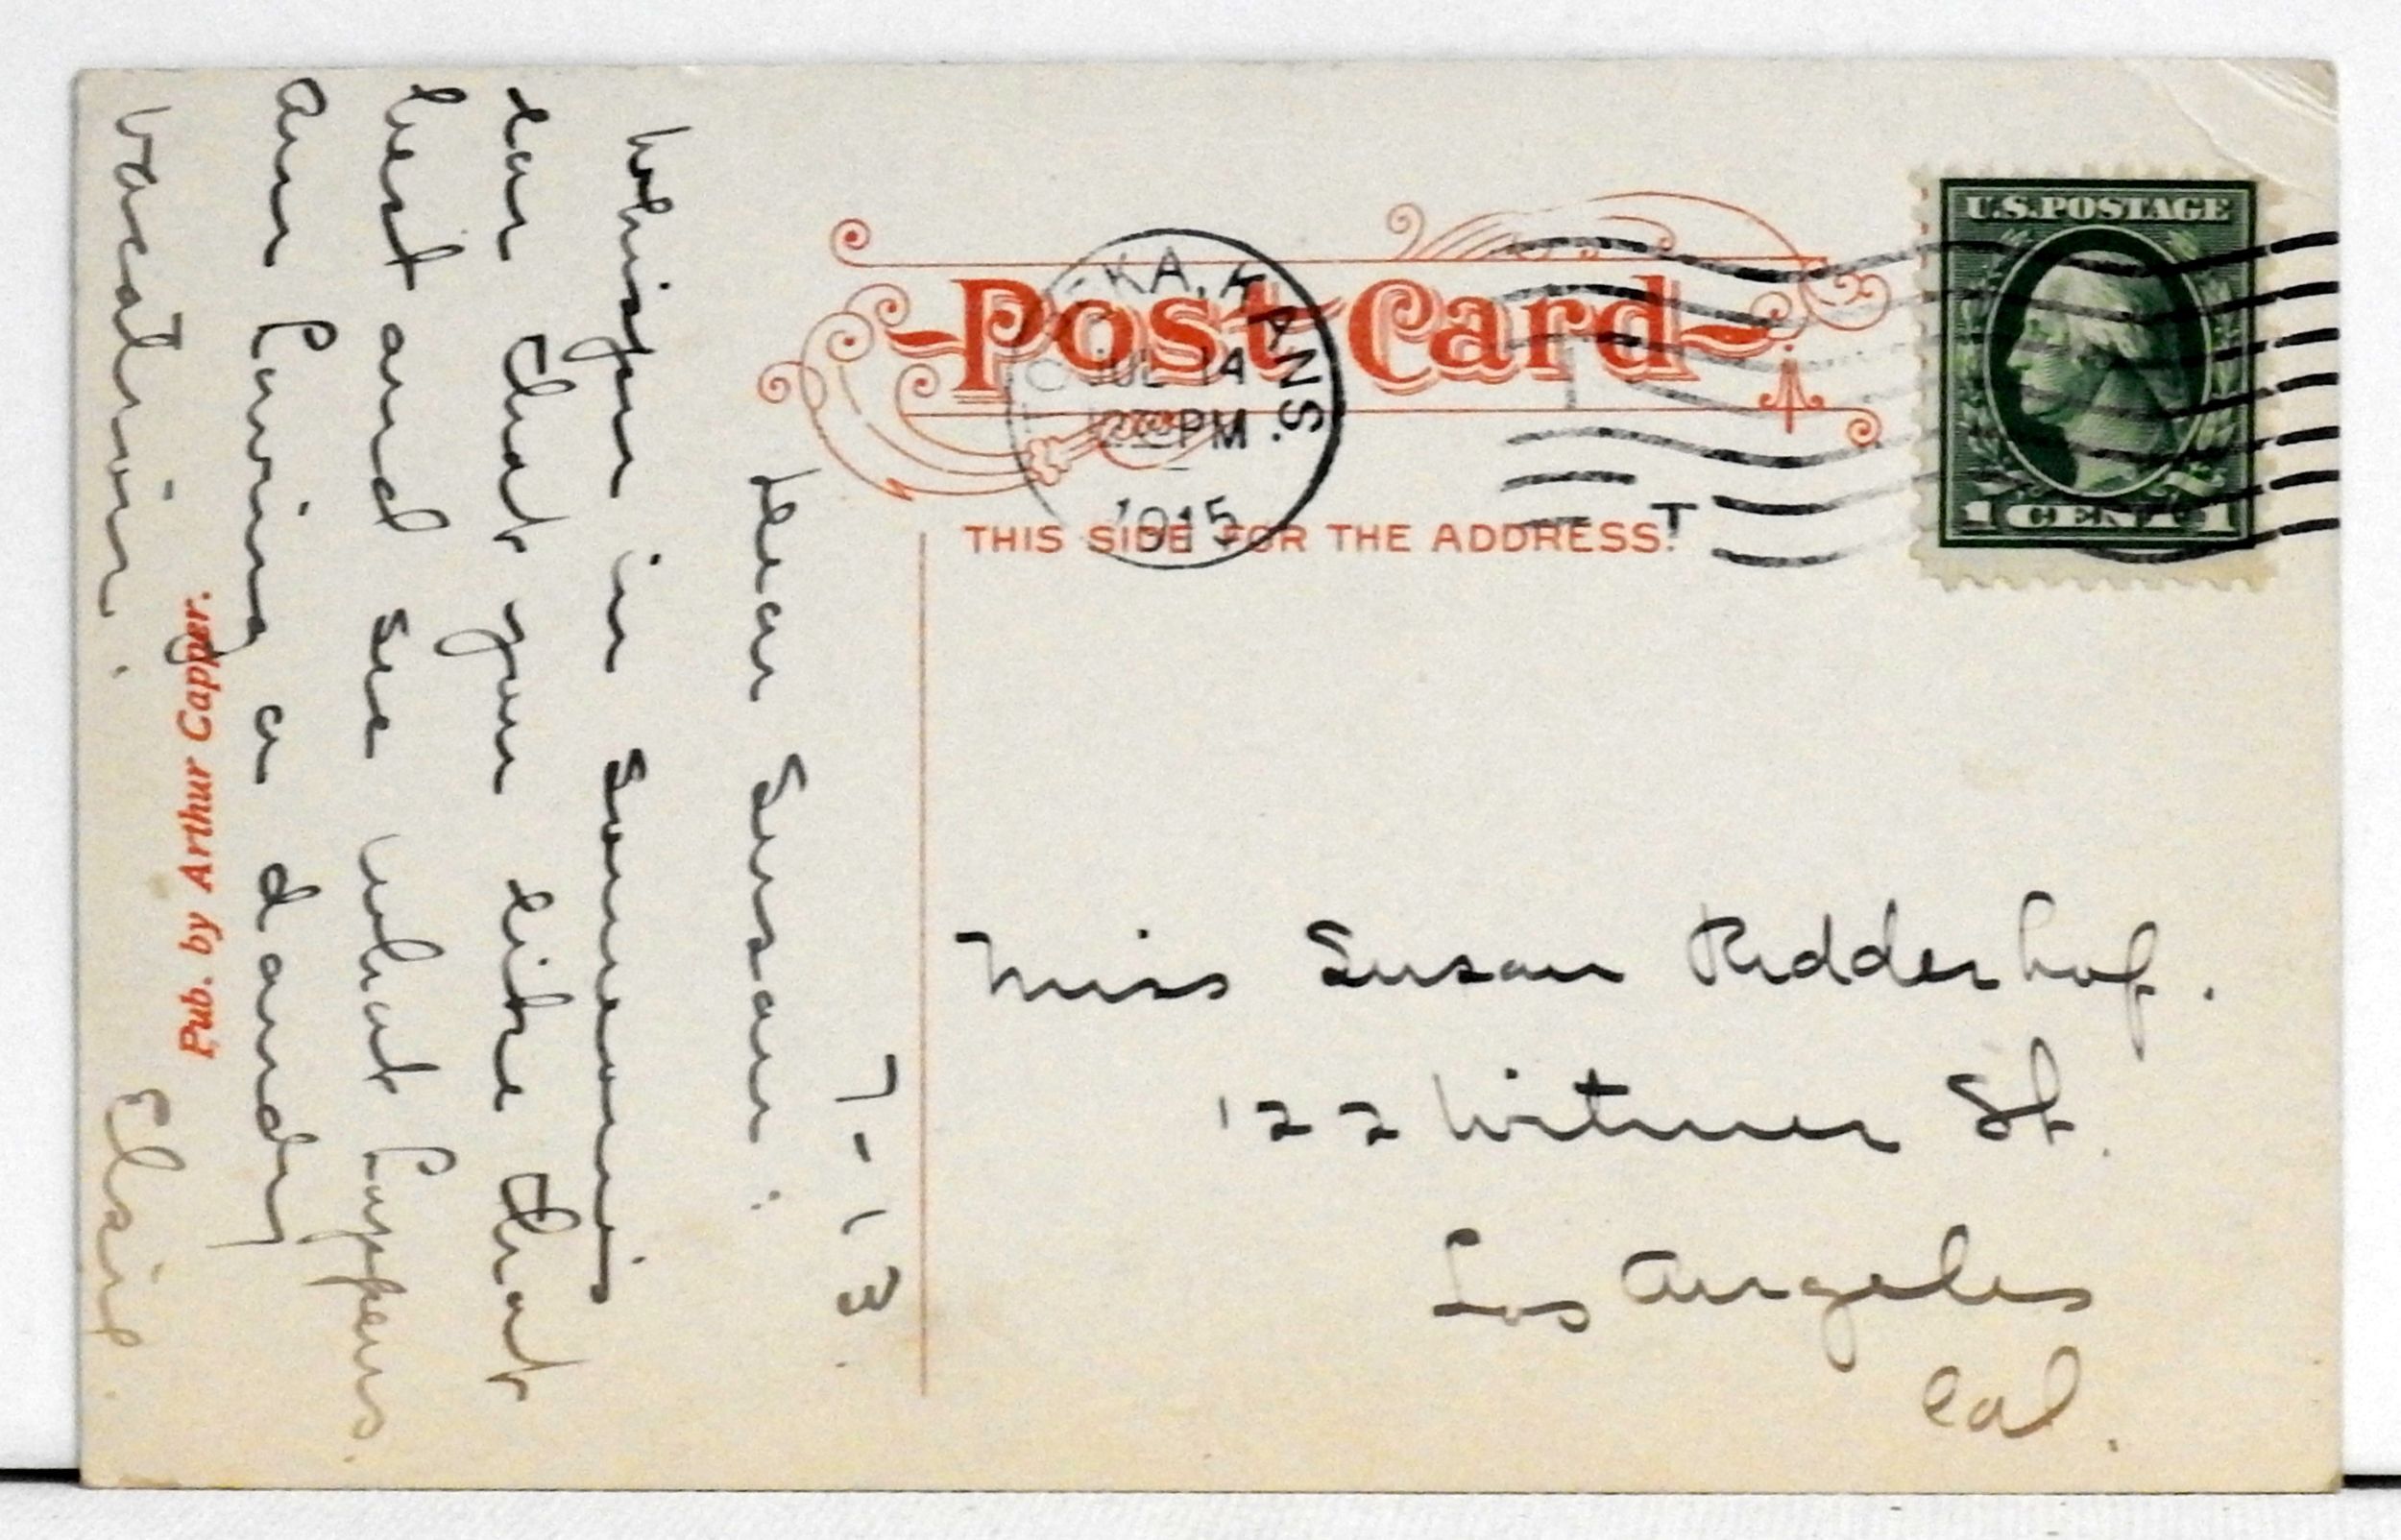 7-13.
Dear Susan:
Whisper in someone's
ear that you like that
best and see what happens.
Am having a dandy
vacation.
Elsie.
Pub. by Arthur Capper.
Post Card
KA, KANS.
JUL 14
PM
1915
THIS SIDE FOR THE ADDRESS.
T
U.S. POSTAGE
1 CENT 1
Miss Susan Ridderhof.
122 Witmer St.
Los Angeles
Cal.